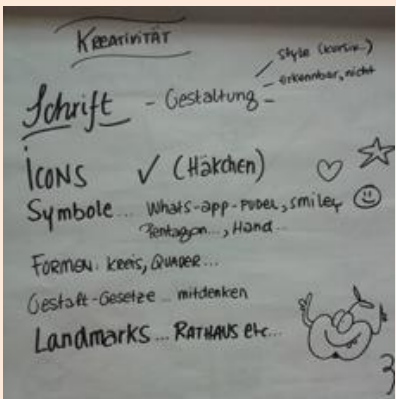 KREATIVITÄT
Style (kursiv..)
Schrift - Gestaltung - erkennbar, nicht
Icons ✓ (Häkchen)
Symbole... Whats-app-PUDEL, smiley
Pentagon..., Hand...
FORMEN. KREIS, QUADER...
Gestalt-Gesetze... mitdenken
Landmarks... RATHAUS etc...
3